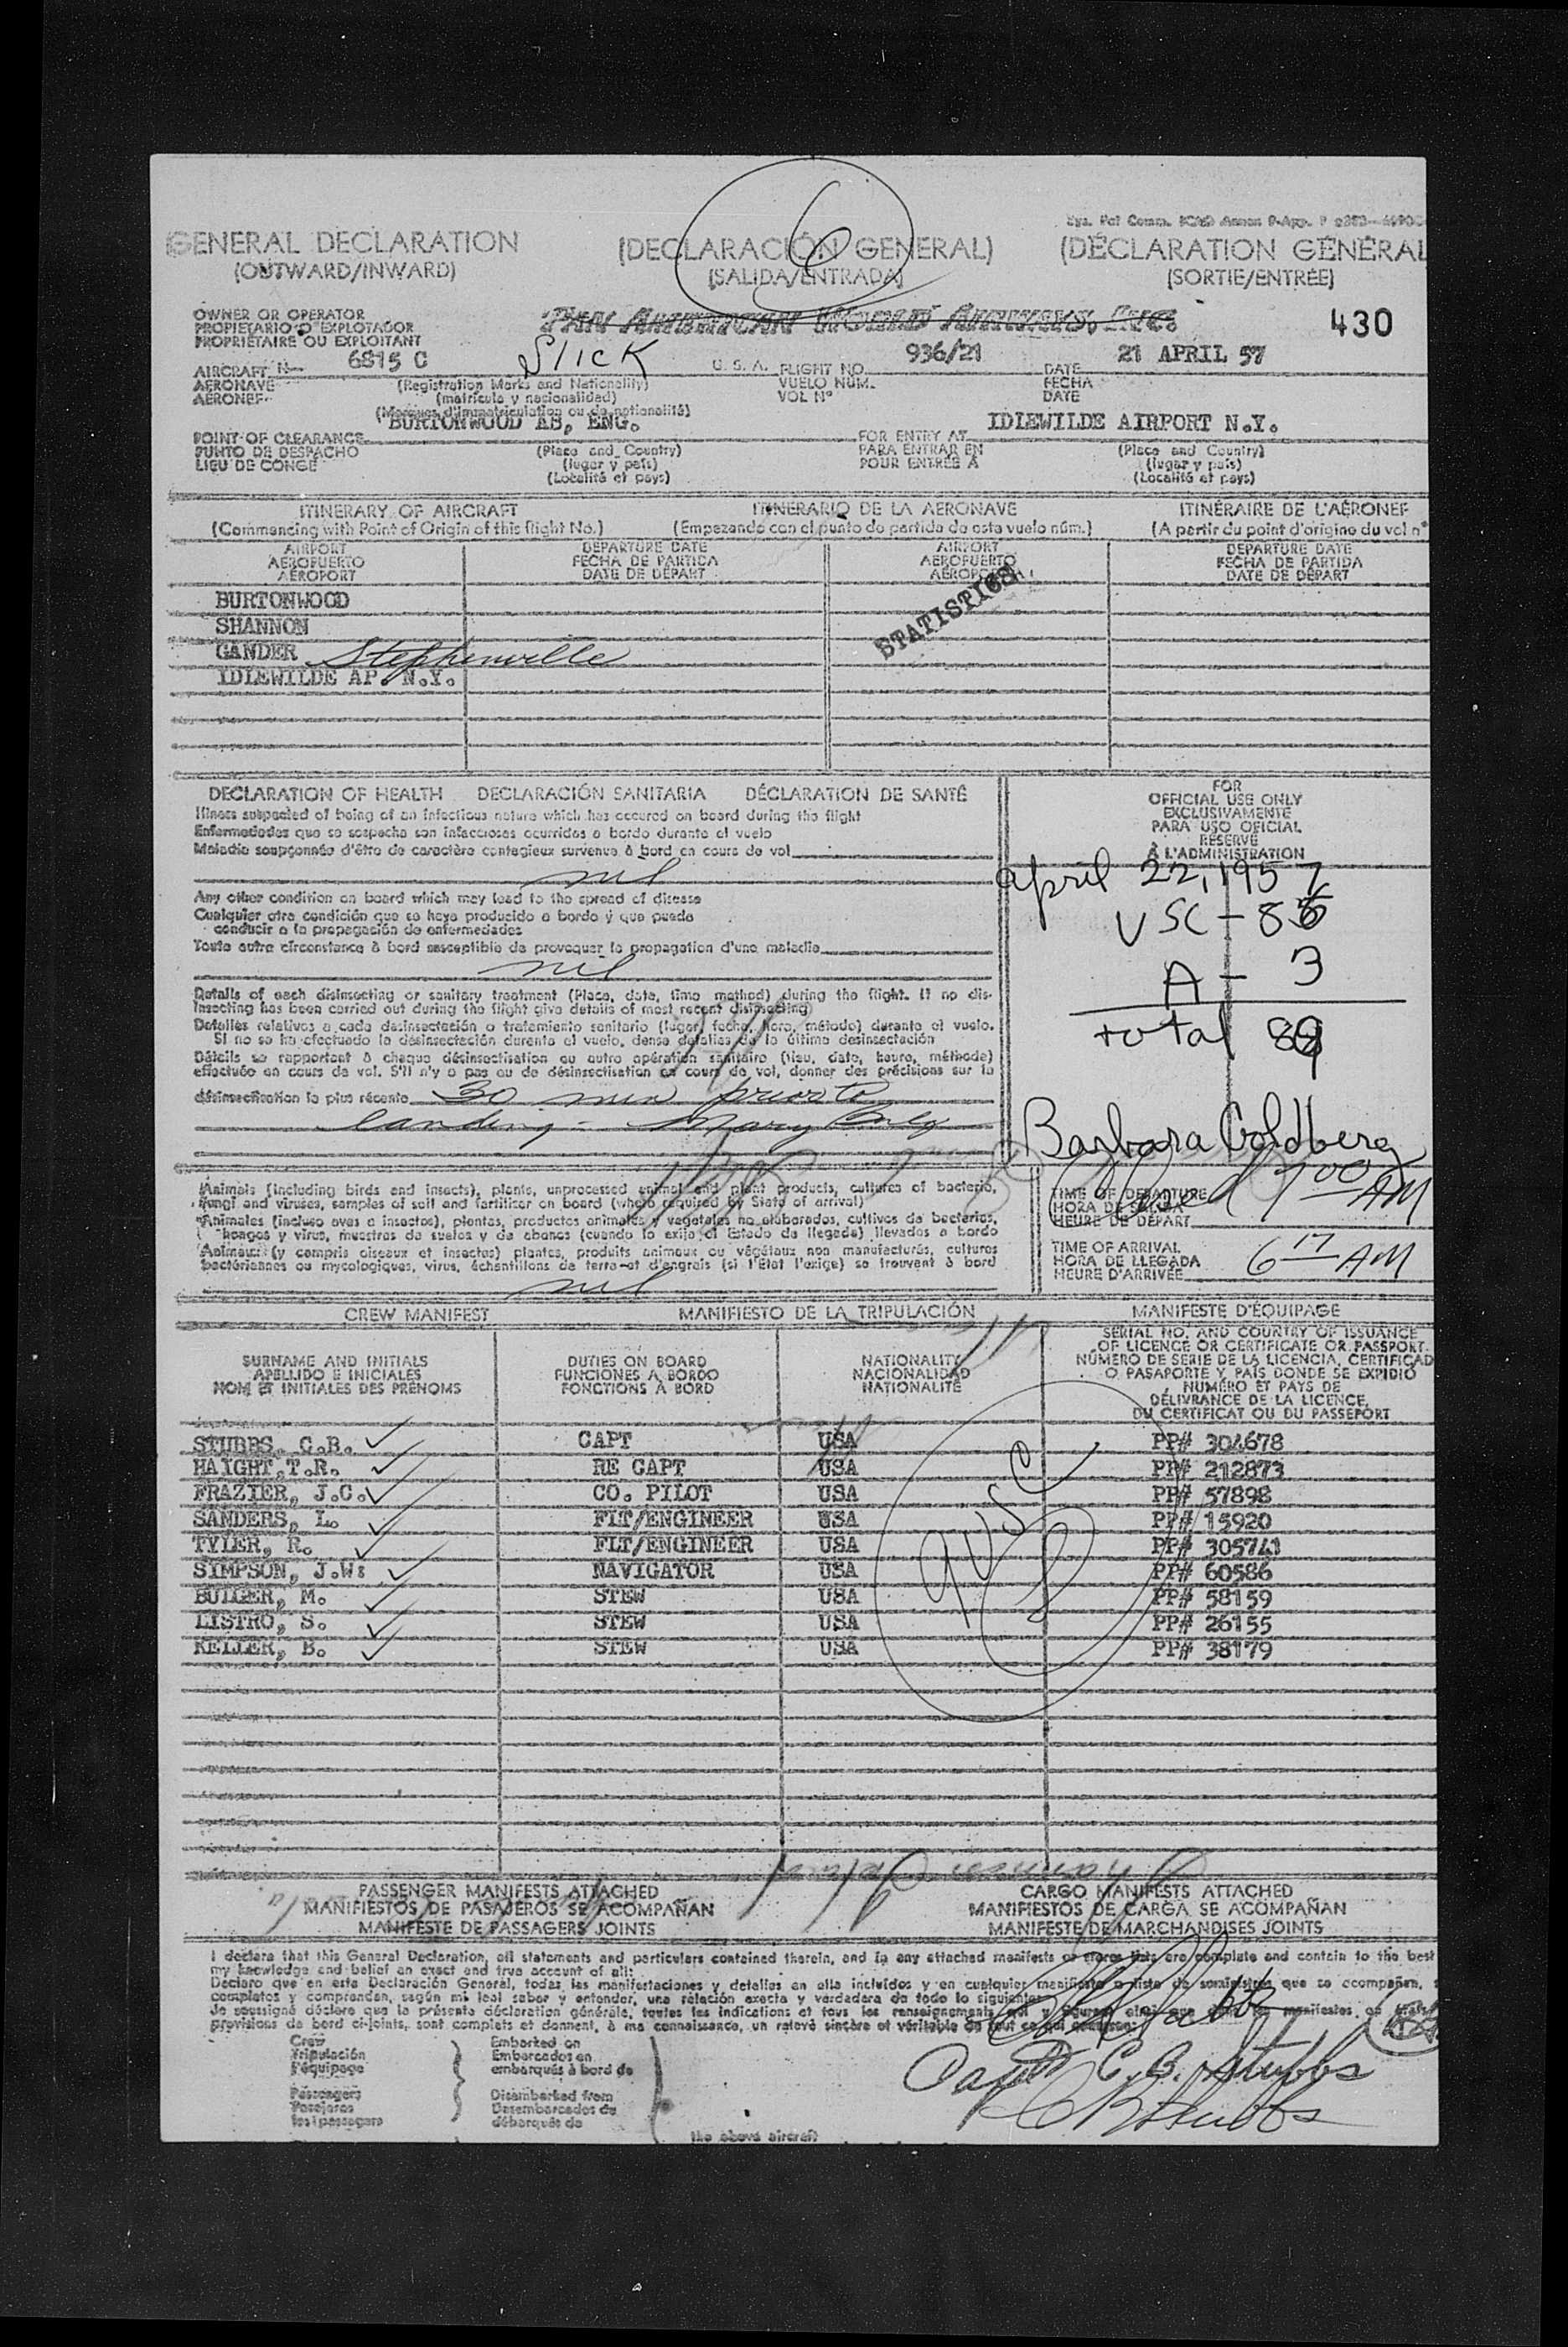 6
GENERAL DECLARATION (DECLARACIÓN GENERAL) (DÉCLARATION GÉNÉRAL
(OUTWARD/INWARD) (SALIDA/ENTRADA) (SORTIE/ENTRÉE)
OWNER OR OPERATOR
PROPIETARIO O EXPLOTADOR
PROPRIÉTAIRE OU EXPLOITANT
PAN AMERICAN WORLD AIRWAYS, INC.
430
AIRCRAFT N- 6815 C Slick U. S. A. FLIGHT NO. 936/21 DATE 21 APRIL 57
AERONAVE (Registration Marks and Nationality) VUELO NÚM. FECHA
AÉRONEF (matrícula y nacionalidad) VOL Nº DATE
(Marques d'immatriculation ou de nationalité)
POINT OF CLEARANCE BURTONWOOD AB, ENG. FOR ENTRY AT IDLEWILDE AIRPORT N.Y.
PUNTO DE DESPACHO (Place and Country) PARA ENTRAR EN (Place and Country)
LIEU DE CONGÉ (lugar y país) POUR ENTRÉE À (lugar y país)
(Localité et pays) (Localité et pays)
ITINERARY OF AIRCRAFT ITINERARIO DE LA AERONAVE ITINÉRAIRE DE L'AÉRONEF
(Commencing with Point of Origin of this flight No.) (Empezando con el punto de partida de esta vuelo núm.) (A partir du point d'origine du vol nº
AIRPORT DEPARTURE DATE AIRPORT DEPARTURE DATE
AEROPUERTO FECHA DE PARTIDA AEROPUERTO FECHA DE PARTIDA
AÉROPORT DATE DE DÉPART AÉROPORT DATE DE DÉPART
STATISTICS
BURTONWOOD
SHANNON
GANDER Stephenville
IDLEWILDE AP. N.Y.
DECLARATION OF HEALTH DECLARACIÓN SANITARIA DÉCLARATION DE SANTÉ
Illness suspected of being of an infectious nature which has occured on board during the flight
Enfermedades que se sospecha son infecciosas ocurridas a bordo durante el vuelo
Maladie soupçonnée d'être de caractère contagieux survenue à bord en cours de vol
nil
Any other condition on board which may lead to the spread of disease
Cualquier otra condición que se haya producido a bordo y que pueda
conducir a la propagación de enfermedades
Toute autre circonstance à bord susceptible de provoquer la propagation d'une maladie
nil
Details of each disinsecting or sanitary treatment (Place, date, time method) during the flight. If no dis-
insecting has been carried out during the flight give details of most recent disinsecting
Detalles relativos a cada desinsectación o tratamiento sanitario (lugar, fecha, hora, método) durante el vuelo.
Si no se ha efectuado la desinsectación durante el vuelo, dense detalles de la última desinsectación
Détails se rapportant à chaque désinsectisation ou autre opération sanitaire (lieu, date, heure, méthode)
effectuée en cours de vol. S'il n'y a pas eu de désinsectisation en cours de vol, donner des précisions sur la
désinsectisation la plus récente 30 min prior to
landing - Mary
FOR
OFFICIAL USE ONLY
EXCLUSIVAMENTE
PARA USO OFICIAL
RÉSERVÉ
À L'ADMINISTRATION
April 22, 1957
USC - 86
A - 3
total 89
Barbara Goldberg
Animals (including birds and insects), plants, unprocessed animal and plant products, cultures of bacteria,
fungi and viruses, samples of soil and fertilizer on board (where required by State of arrival)
Animales (incluso aves e insectos), plantas, productos animales y vegetales no elaborados, cultivos de bacterias,
hongos y virus, muestras de suelos y de abonos (cuando lo exija el Estado de llegada) llevados a bordo
Animaux (y compris oiseaux et insectes) plantes, produits animaux ou végétaux non manufacturés, cultures
bactériennes ou mycologiques, virus, échantillons de terre et d'engrais (si l'État l'exige) se trouvent à bord
nil
TIME OF DEPARTURE
HORA DE SALIDA
HEURE DE DÉPART
7 00 AM
TIME OF ARRIVAL
HORA DE LLEGADA
HEURE D'ARRIVÉE
6 17 AM
CREW MANIFEST MANIFIESTO DE LA TRIPULACIÓN MANIFESTE D'ÉQUIPAGE
SURNAME AND INITIALS
APELLIDO E INICIALES
NOM ET INITIALES DES PRÉNOMS
DUTIES ON BOARD
FUNCIONES A BORDO
FONCTIONS À BORD
NATIONALITY
NACIONALIDAD
NATIONALITÉ
SERIAL NO. AND COUNTRY OF ISSUANCE
OF LICENCE OR CERTIFICATE OR PASSPORT
NÚMERO DE SERIE DE LA LICENCIA, CERTIFICAD
O PASAPORTE Y PAÍS DONDE SE EXPIDIÓ
NUMÉRO ET PAYS DE
DÉLIVRANCE DE LA LICENCE,
DU CERTIFICAT OU DU PASSEPORT
STUBBS, C.B. CAPT USA PP# 304678
HAIGHT, T.R. RE CAPT USA PP# 212873
FRAZIER, J.C. CO. PILOT USA PP# 57898
SANDERS, L. FLT/ENGINEER USA PP# 15920
TYLER, R. FLT/ENGINEER USA PP# 305741
SIMPSON, J.W. NAVIGATOR USA PP# 60586
BULGER, M. STEW USA PP# 58159
LISTRO, S. STEW USA PP# 26155
KELLER, B. STEW USA PP# 38179
9 USC
PASSENGER MANIFESTS ATTACHED CARGO MANIFESTS ATTACHED
MANIFIESTOS DE PASAJEROS SE ACOMPAÑAN MANIFIESTOS DE CARGA SE ACOMPAÑAN
MANIFESTE DE PASSAGERS JOINTS MANIFESTE DE MARCHANDISES JOINTS
I declare that this General Declaration, all statements and particulars contained therein, and in any attached manifests or stores lists are complete and contain to the best
my knowledge and belief an exact and true account of all:
Declaro que en esta Declaración General, todas las manifestaciones y detalles en ella incluídos y en cualquier manifiesto o lista de suministros que se acompañan,
completos y comprenden, según mi leal saber y entender, una relación exacta y verdadera de todo lo siguiente
Je soussigné déclare que la présente déclaration générale, toutes les indications et tous les renseignements qui y figurent
provisions de bord ci-joints, sont complets et donnent, à ma connaissance, un relevé sincère et véritable de tout ce qui
Crew
Tripulación
l'équipage
Passengers
Pasajeros
les passagers
Embarked on
Embarcados en
embarqués à bord de
Disembarked from
Desembarcados de
débarqués de
the above aircraft
Capt C. B. Stubbs
C B Stubbs